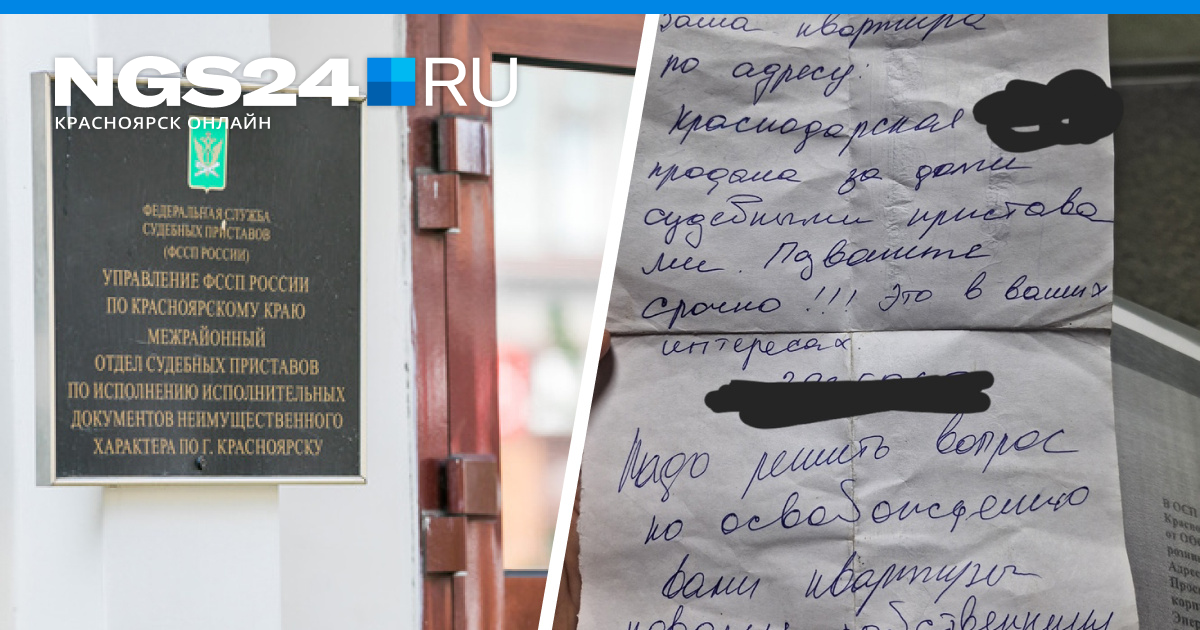 NGS24 RU
КРАСНОЯРСК ОНЛАЙН
ФЕДЕРАЛЬНАЯ СЛУЖБА
СУДЕБНЫХ ПРИСТАВОВ
(ФССП РОССИИ)
УПРАВЛЕНИЕ ФССП РОССИИ
ПО КРАСНОЯРСКОМУ КРАЮ
МЕЖРАЙОННЫЙ
ОТДЕЛ СУДЕБНЫХ ПРИСТАВОВ
ПО ИСПОЛНЕНИЮ ИСПОЛНИТЕЛЬНЫХ
ДОКУМЕНТОВ НЕИМУЩЕСТВЕННОГО
ХАРАКТЕРА ПО Г. КРАСНОЯРСКУ
Ваша квартира
по адресу:
Краснодарская
продана за долги
судебными пристава
ми. Позвоните
срочно!!! Это в ваших
интересах.
Надо решить вопрос
по освобождению
Вами квартиры
новыми собственником
В ОСП